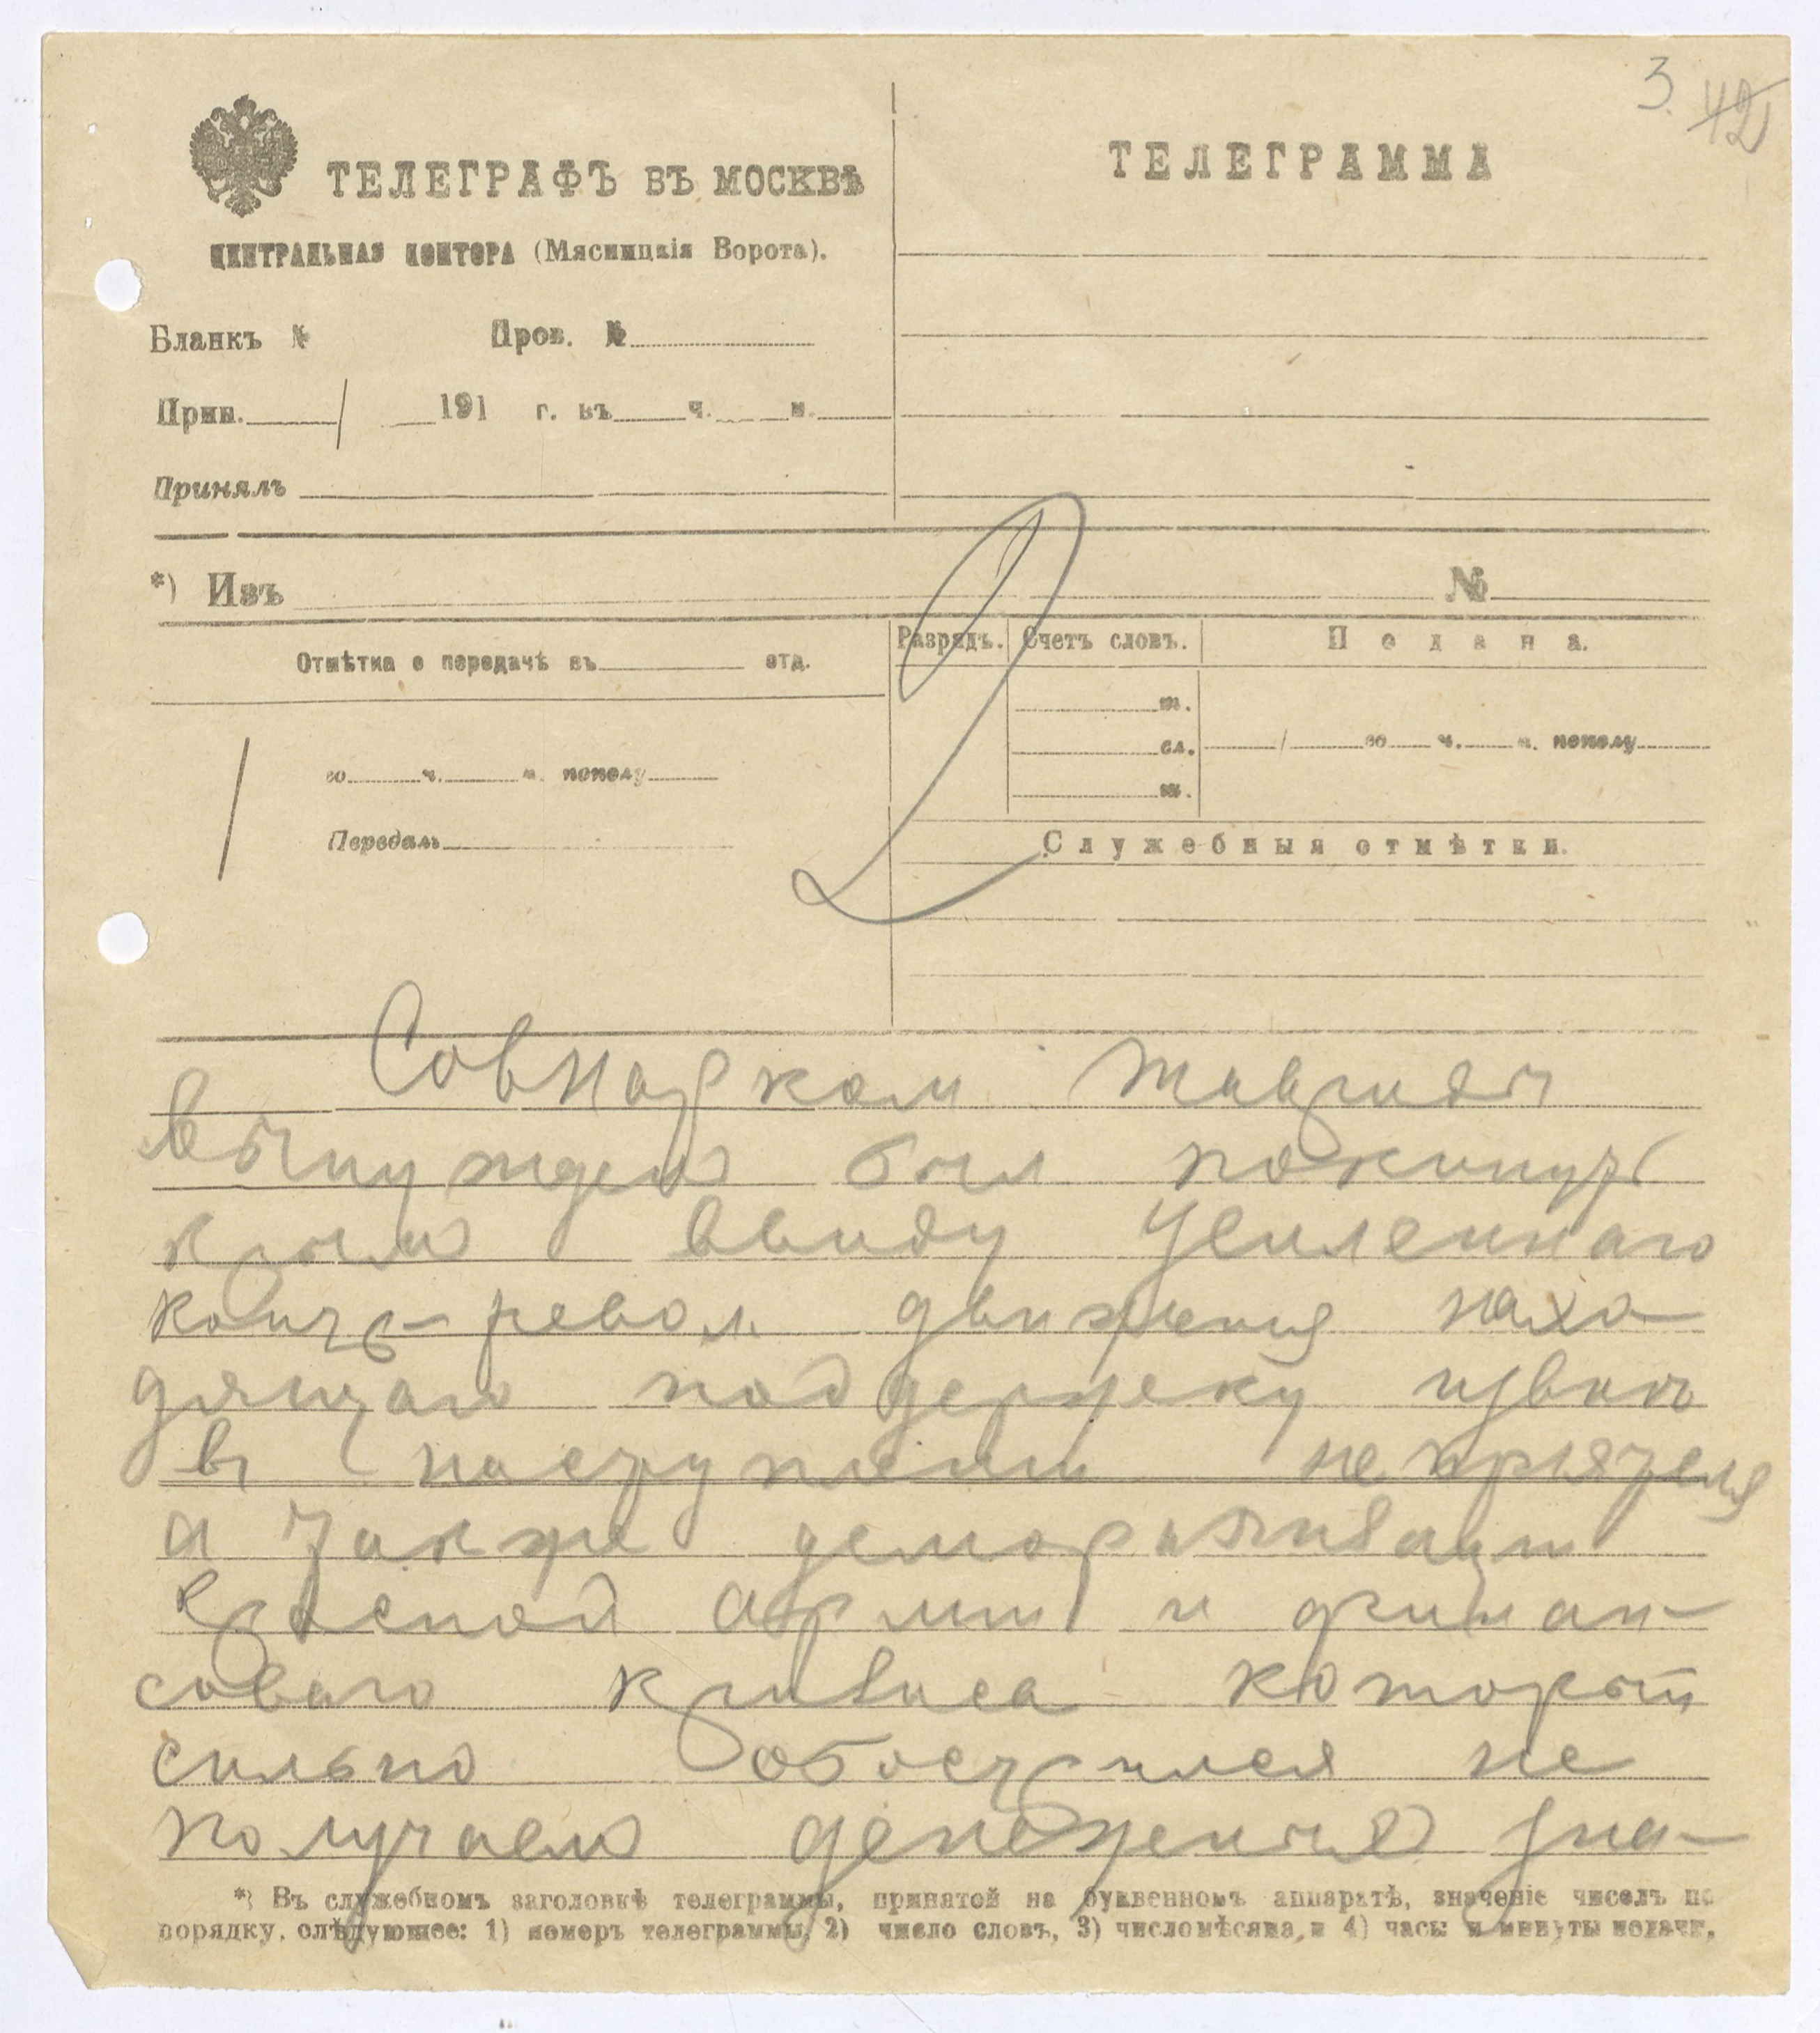 3. 42
ТЕЛЕГРАФЪ ВЪ МОСКВѢ
ЦЕНТРАЛЬНАЯ КОНТОРА (Мясницкія Ворота).
Бланкъ № Пров. №
Прин. / 191 г. въ ч. м.
Принялъ
ТЕЛЕГРАММА
*) Изъ №
Отмѣтка о передачѣ въ отд.
/ го ч. м. пополу
Передалъ
Разрядъ. Счетъ словъ. Подана.
сл. / го ч. м. пополу
Служебныя отмѣтки.
2
Совнарком Тавриды
вынужден был покинуть
крым ввиду усиленнаго
контр-револ. движения нахо-
дящаго поддержку извне
в наступлении неприятеля
а также деморализации
красной армии и финан-
соваго кризиса который
сильно обострился не
получаем денежных зна-
*) Въ служебномъ заголовкѣ телеграммы, принятой на буквенномъ аппаратѣ, значеніе чиселъ по
порядку, слѣдующее: 1) номеръ телеграммы, 2) число словъ, 3) число мѣсяца, и 4) часы и минуты подачи.